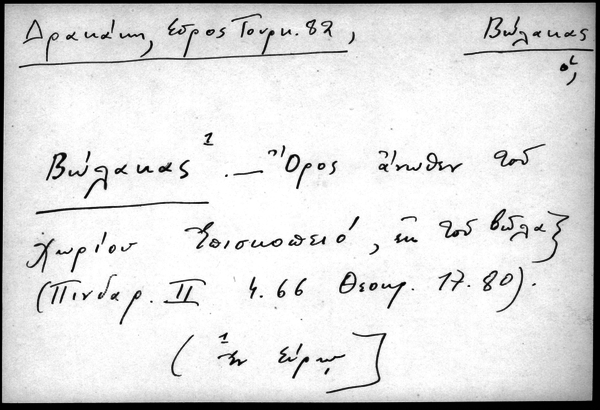 Δρακάκη, Σῦρος Τουρκ. 82, Βώλακας
ὁ,
Βώλακας¹. — Ὄρος ἄνωθεν τοῦ
χωρίου Ἐπισκοπειό, ἐκ τοῦ βῶλα}
(Πινδαρ. ΙΙ 4.66 Θεοκρ. 17.80).
(¹ ἐν Σύρῳ]